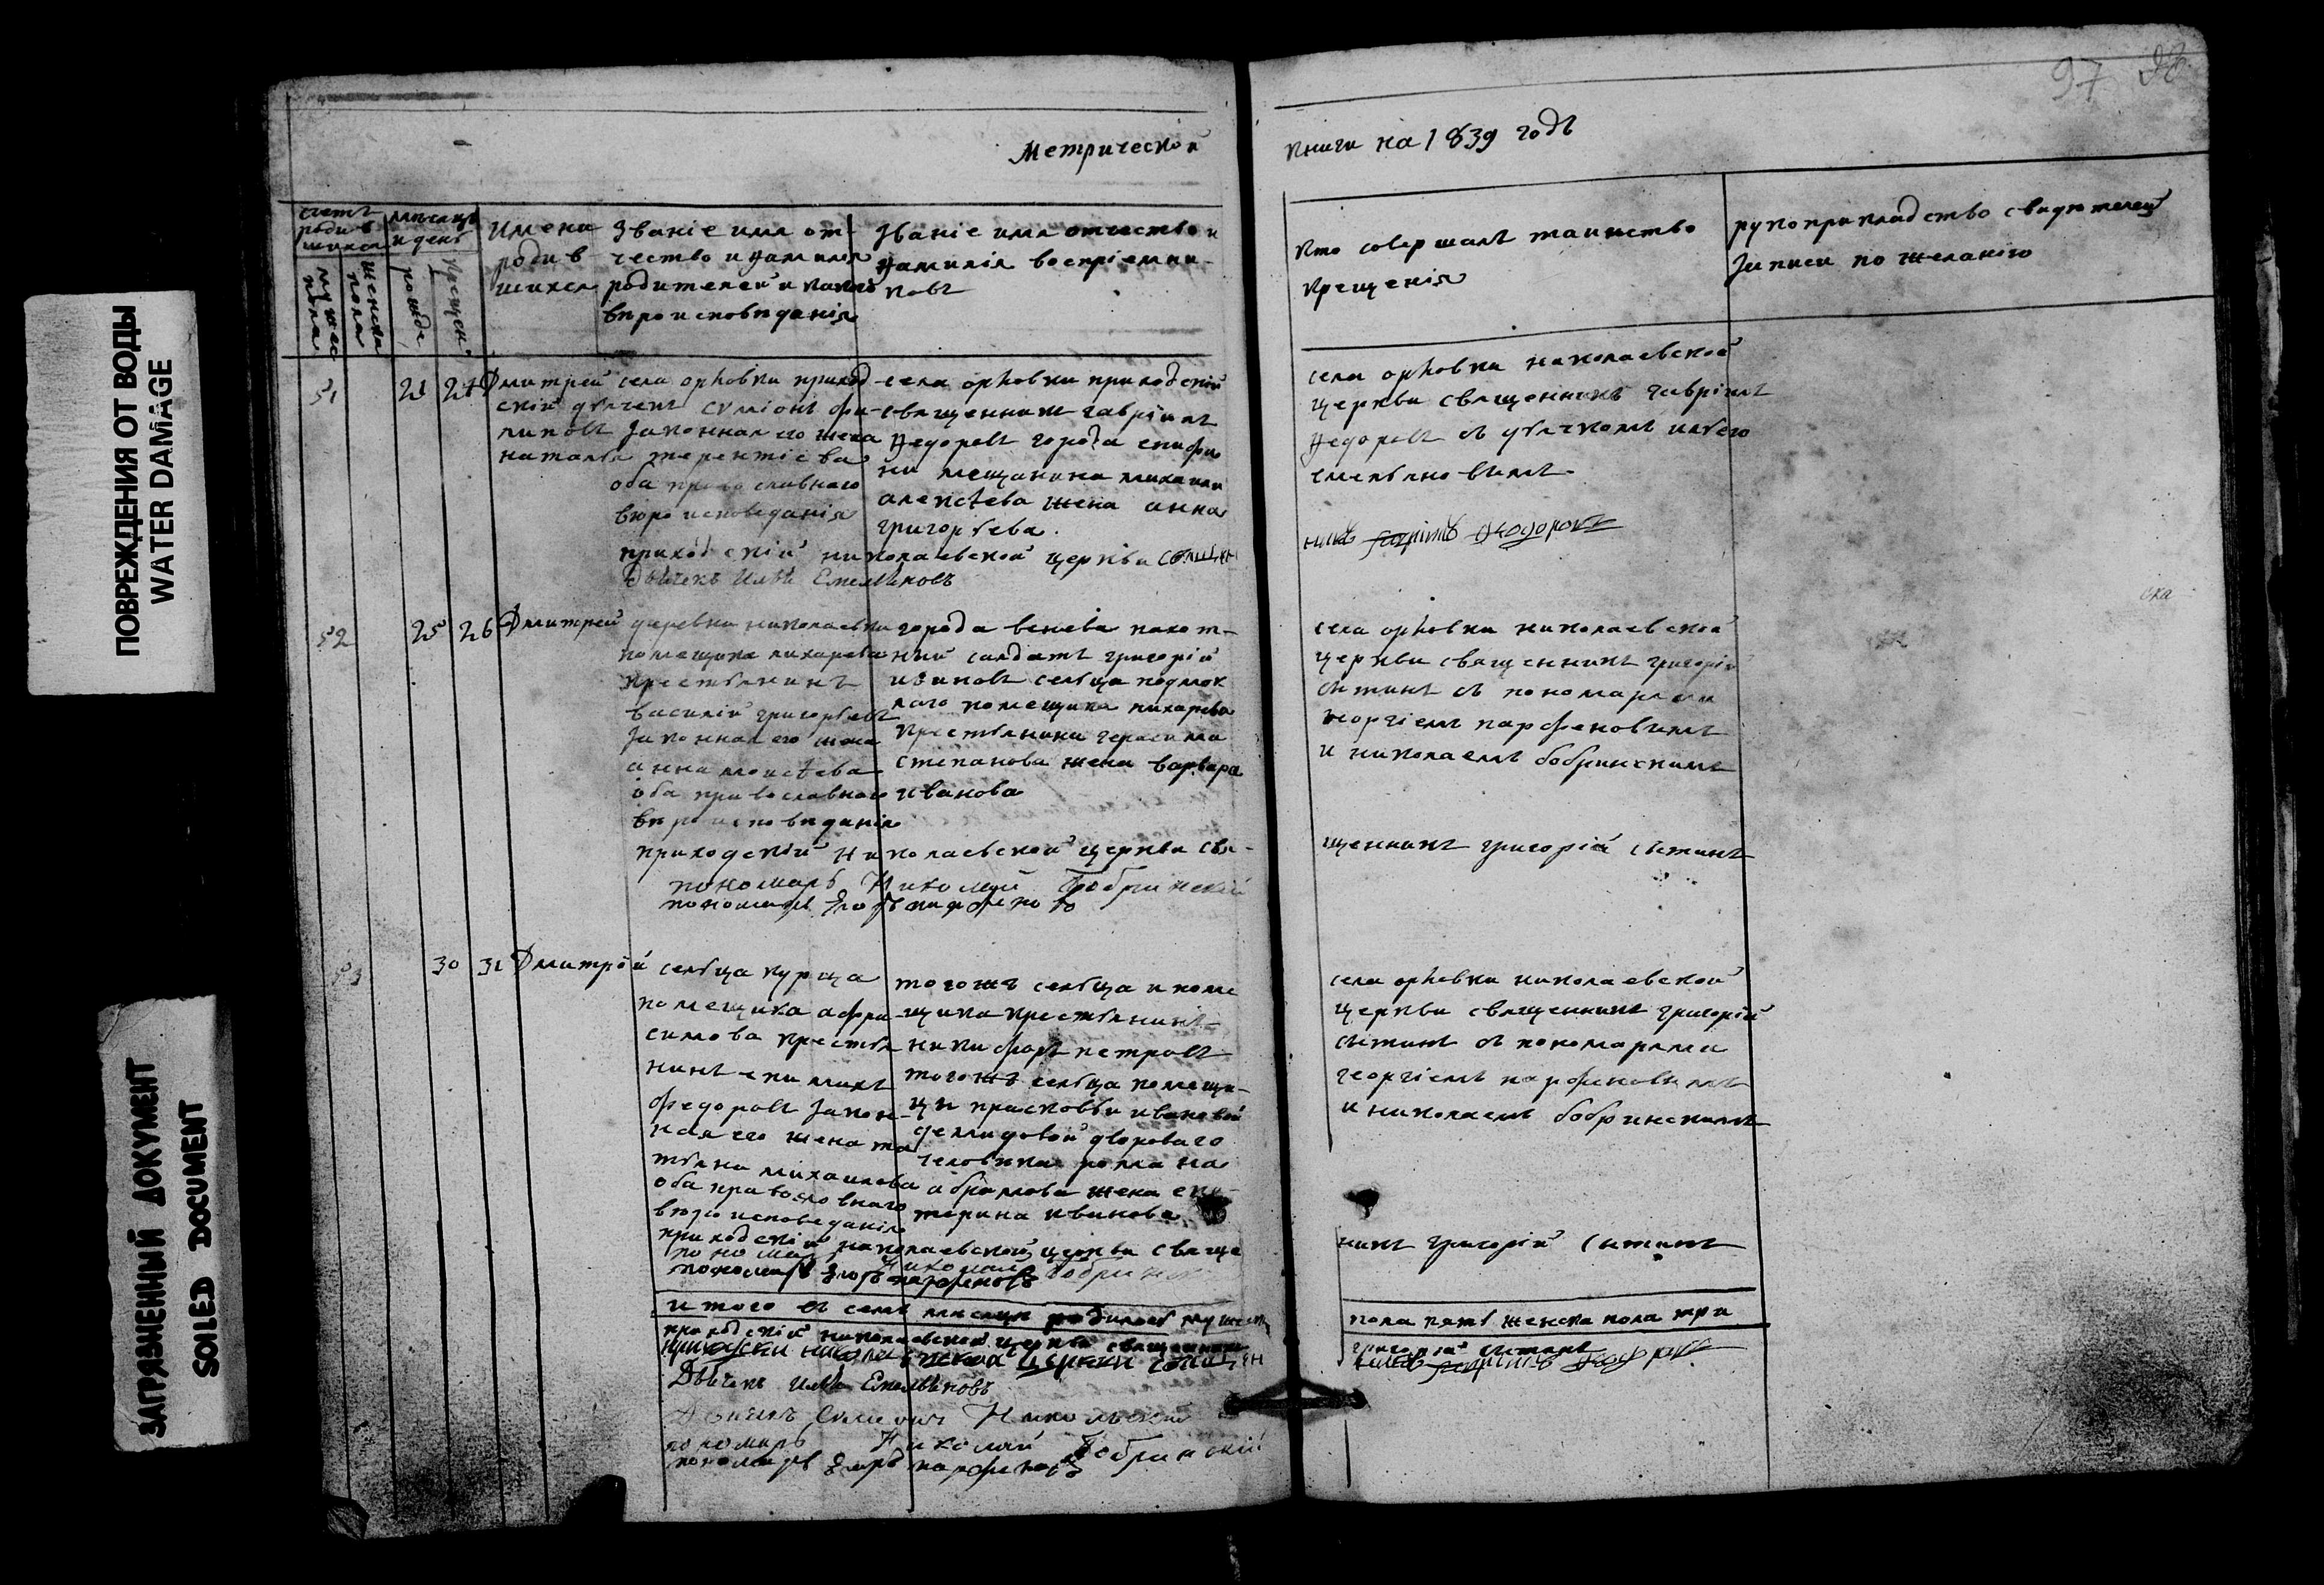 ПОВРЕЖДЕНИЯ ОТ ВОДЫ
WATER DAMAGE
ЗАГРЯЗНЕННЫЙ ДОКУМЕНТ
SOILED DOCUMENT
Метрической
книги на 1839 годъ
97
счетъ родив шихся
мужес пола
женска пола
месяцъ и день
рожде.
крещен.
Имена
родив
шихся
Званiе имя от-
чество и фамилiя
родителей и какого
вероисповеданiя
Званiе имя отчество и
фамилiя воспрiемни-
ковъ
Кто совершалъ таинство
крещенiя
рукоприкладство свидетелей
записи по желанiю
51
21
24
Дмитрей
села орловки приход-
скiй дьячекъ симiонъ фи-
липовъ законная его жена
наталья терентiева
оба православнаго
вероисповеданiя
села орловки приходскiй
священникъ гаврiилъ
федоровъ города епифа
ни мещанина михаила
алексеева жена анна
григорьева.
села орловки николаевской
церкви священникъ гаврiилъ
федоровъ съ дьячкомъ ильею
емельяновымъ.
приходскiй николаевской церкви священ
никъ гаврiилъ Феодоровъ
Дьячекъ Илья Емельяновъ
52
25
26
Дмитрей
деревни николаевки
помещика лихарева
крестьянинъ
василiй григорьевъ
законная его жена
анна моисеева
оба православнаго
вероисповеданiя
города венева пахот-
ный солдатъ григорiй
сельца подмок
лаго помещика лихарева
крестьянина герасима
степанова жена варвара
иванова
села орловки николаевской
церкви священникъ григорiй
сытинъ съ пономарями
георгiемъ парфеновымъ
и николаемъ бобринскимъ
приходскiй Николаевской церкви свя-
щенникъ григорiй сытинъ
пономарь Николай Бобринскiй
пономарь Егоръ парфеновъ
53
30
31
Дмитрей
сельца курца
помещика афра-
симова крестья
нинъ
федоровъ закон-
ная его жена та
тьяна михаилова
оба православнаго
вероисповеданiя
тогожъ сельца и поме
щика крестьянинъ
никифоръ петровъ
тогожъ сельца помещи-
цы прасковьи ивановой
демидовой двороваго
человека романа
абрамова жена ека-
терина иванова
села орловки николаевской
церкви священникъ григорiй
сытинъ съ пономарями
георгiемъ парфеновымъ
и николаемъ бобринскимъ
приходскiй николаевской церкви священ
никъ григорiй сытинъ
пономарь Николай Бобринскiй
пономарь Егоръ парфеновъ
итого въ семъ месяце родилось мужеска
пола пять женска пола три
приходскiй николаевской церкви священникъ
григорiй сытинъ
приходскiй николаевской церкви священ
никъ гаврiилъ Феодоровъ
Дьячекъ Илья Емельяновъ
Дьячекъ Симионъ Никольскiй
пономарь Николай Бобринскiй
пономарь Егоръ парфеновъ